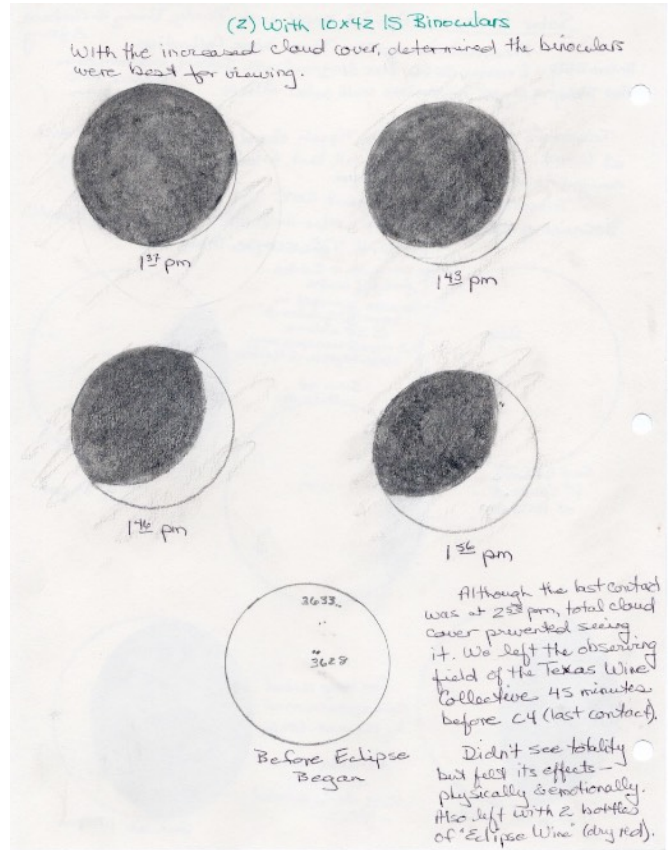 (2) With 10x42 IS Binoculars
With the increased cloud cover, determined the binoculars
were best for viewing.
1 37 pm
1 43 pm
1 46 pm
1 56 pm
3633
3628
Before Eclipse
Began
Although the last contact
was at 2 pm, total cloud
cover prevented seeing
it. We left the observing
field of the Texas Wine
Collective 45 minutes
before C4 (last contact).
Didn't see totality
but felt its effects—
physically & emotionally.
Also left with 2 bottles
of "Eclipse Wine" (dry red).